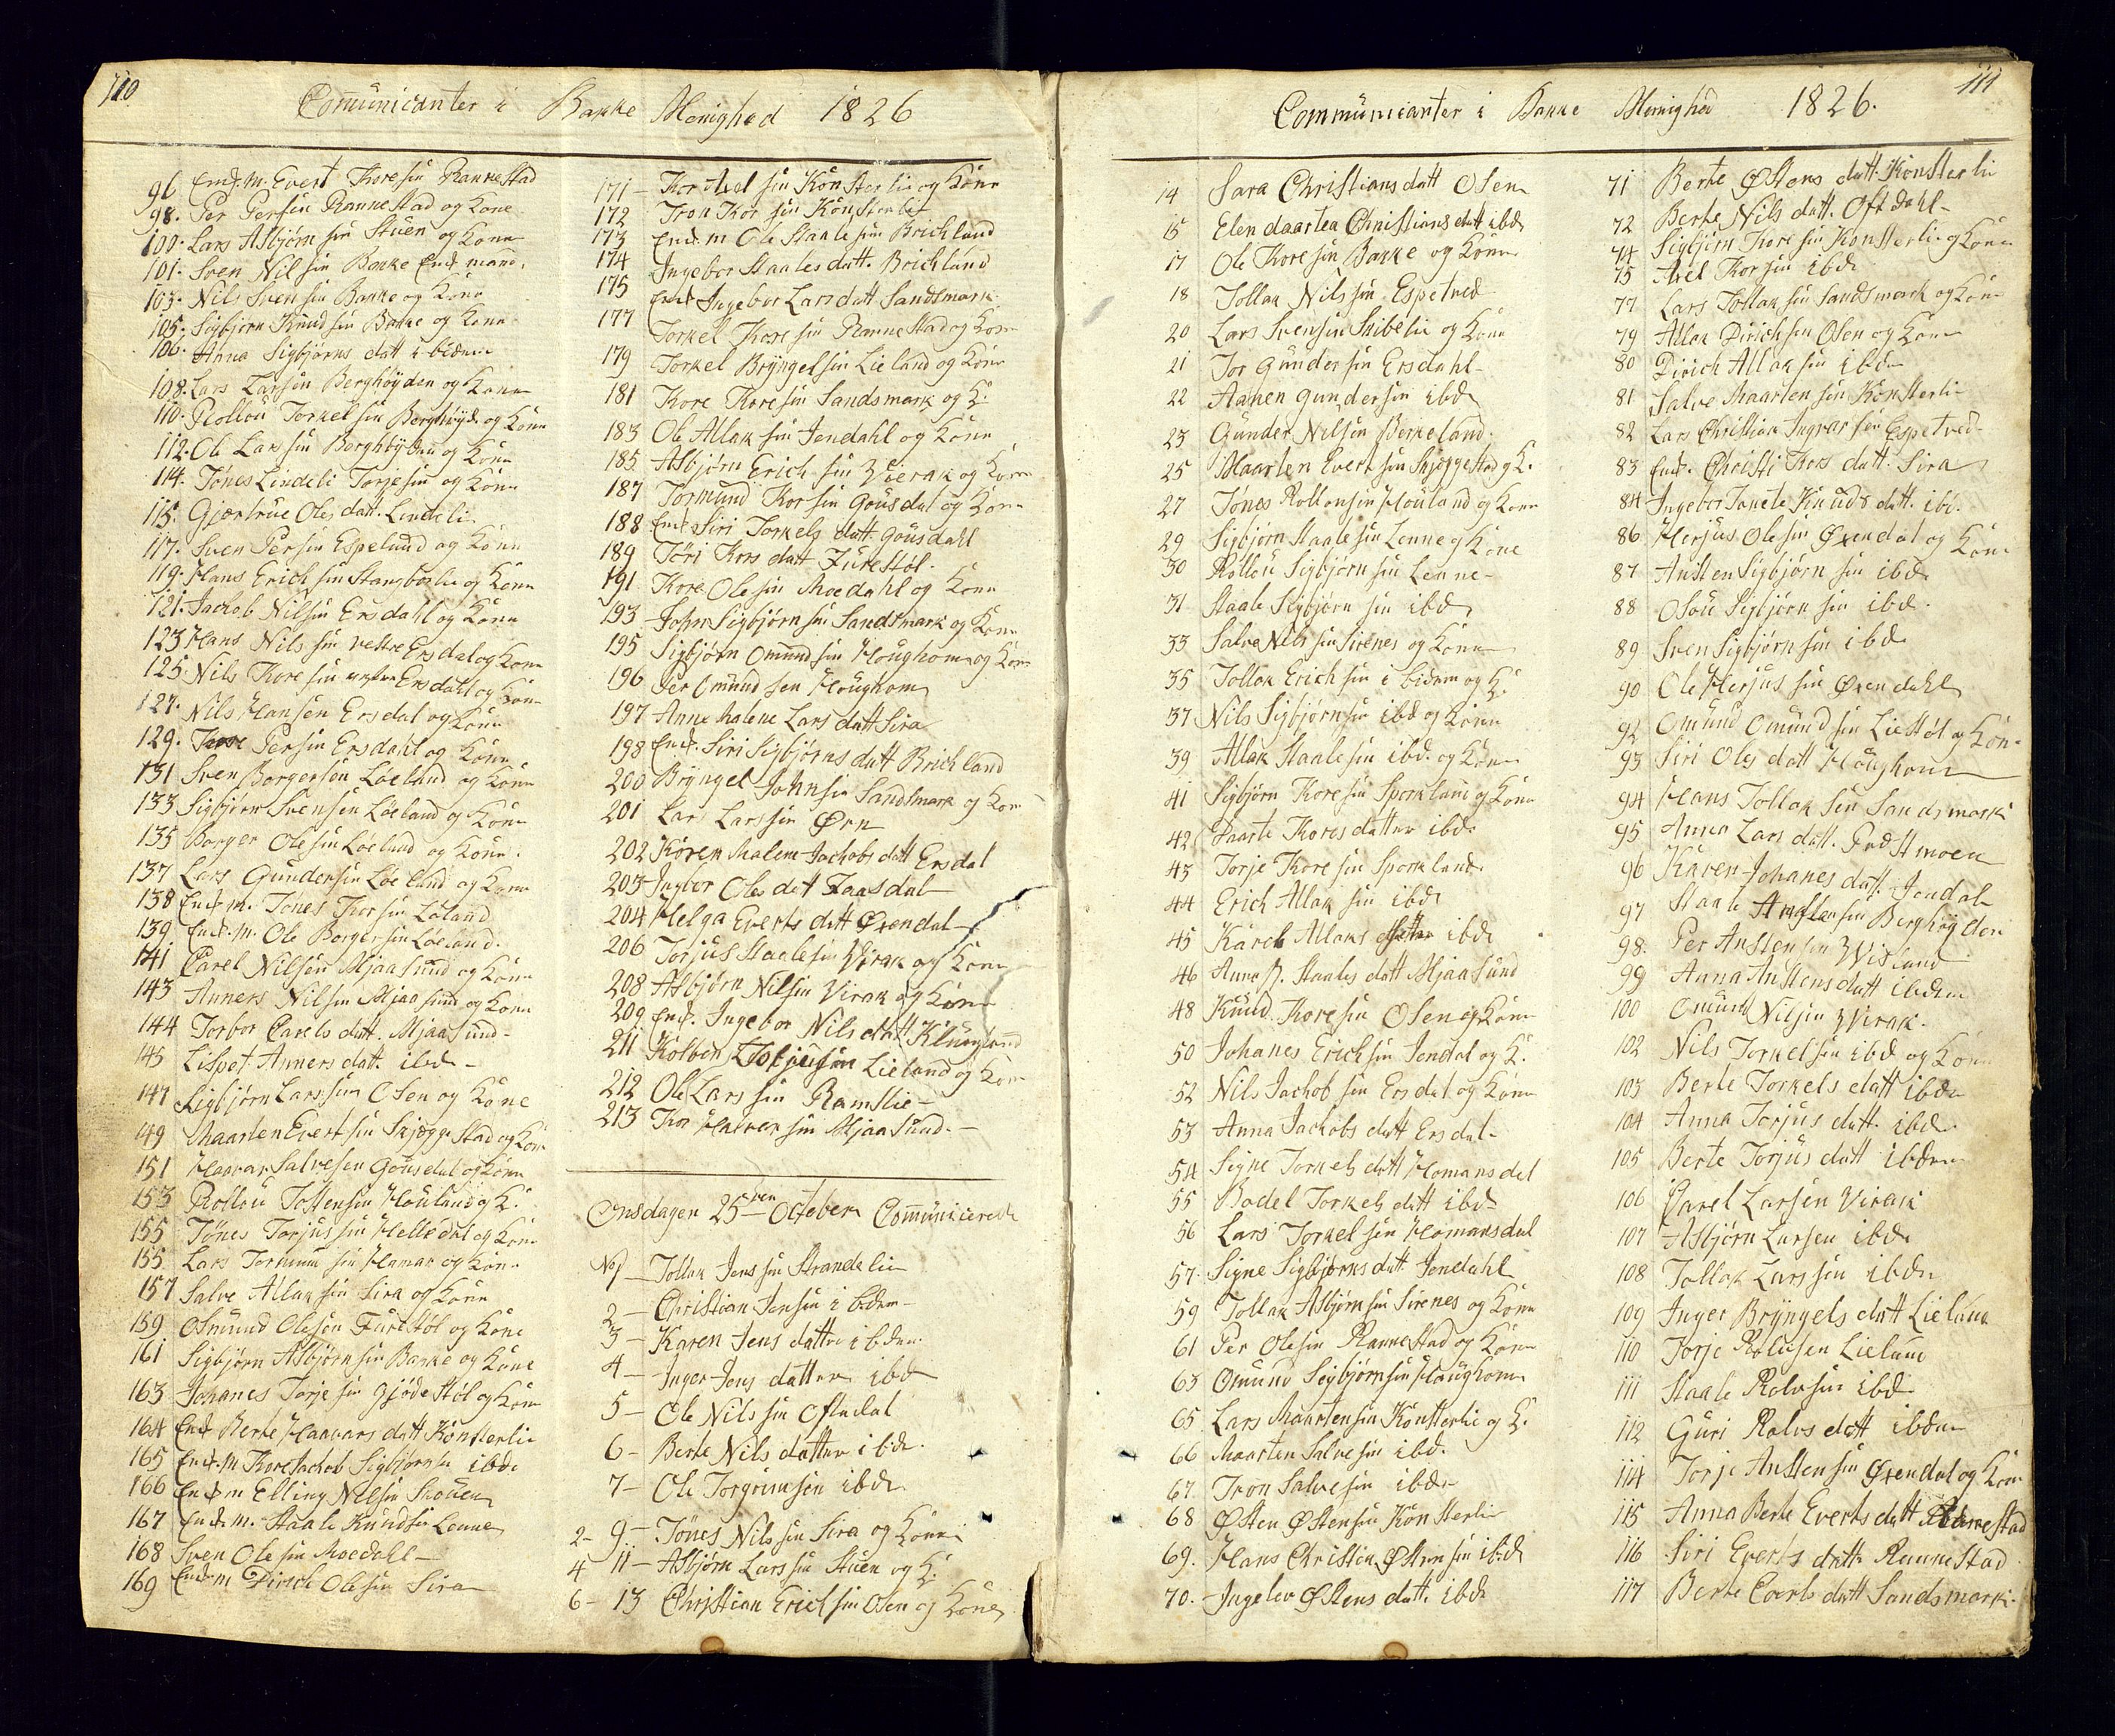 110
Comunicanter i Bakke Menighed 1826
96 Enk. m. Evert Kore sin Rannestad
98. Per Persin Rannestad og Kone
100. Lars Asbjørn sin Stuen og Konn
101. Sven Nilsin Bakke Enk mand.
103. Nils Svensin Bakke og Kone
105. Sigbjørn Knud sin Bakke og Konn
106. Anna Sigbjørns datt ibidem
108. Lars Larsin Berghøyden og Konn
110. Rollou Torkel sin Berghøyd. og Konn
112. Ole Lars sin Berghøyden og Konn
114. Tønes Lindeli Torjesin og Konn
115. Gjærtrue Oles datt. Lindeli
117. Sven Persin Espelund og Konn
119. Hans Erich sin Stangborlie og Konn
121. Jachob Nilsin Ersdahl og Konn
123 Hans Nils sin vestre Ersdal og Kone
125. Nils Kore sin Ersdahl og Kone
127. Nils Hansen Ersdal og Kone
129. Persin Ersdahl og Konn
131 Sven Borgersen Løeland og Konn
133 Sigbjørn Svensen Løeland og Konn
135 Borger Olesin Løelund og Konn.
137 Lars Gundersin Løeland og Konn
138 Enk m. Tønes Thor sin Løland
139 Enk. m. Ole Borgersin Løeland.
141 Parel Nilsin Mjaasund og Konn
143 Anners Nilsin Mjaasund og Konn
144 Torbor Parels datt. Mjaasund-
145 Lispet Anners datt. ibd-
147 Sigbjørn Larssin Osen og Kone
149 Maarten Evert sin Skjeggestad og Kone
151 Haavar Salvesen Gousdal og Konn
153 Rollou Tostensin Houland og K.
155 Tønes Torjus sin Helledal og Kone
155 Lars Tormun sin Hamar og Kone
157 Salve Atlak sin Sira og Konn
159 Osmund Olesen Furestøl og Kone
161 Sigbjørn Asbjørn sin Bakke og Kone
163 Johanes Torje sin Gjødestøl og Kone
164 Enk Berte Haavars datt Konsterlie
165 Enk. m Kore Jachob Sigbjørnsen ibd.
166 Enk m Elling Nilsin Skouen
167 Enk. m. Staale Knudsin Lenne
168 Sven Olesin Moedahl-
169 Enk m Dirich Olesin Sira
171 - Kor Axel sin Konsterlie og Konn
172 Tron Kor sin Konsterlie
173 Enk. m Ole Staalesin Brichland
174 Ingebor Staales datt. Brichland
175 Enk Ingebor Larsdatt Sandsmark
177 Torkel Kore sin Rannestad og Kone
179 Torkel Bryngelsin Lieland og Kone
181 Kore Koresin Sandsmark og K.
183 Ole Atlak sin Jendahl og Konn
185 Asbjørn Erich sin Vierak og Kone
187 Tormund Kor sin Gousdal og Kone
188 Enk Siri Torkels datt. Gousdahl
189 Tori Kors datt Furestøl.
191 Kore Olesin Moedahl og Konn
193 John Sigbjørn sin Sandsmark og Konn
195 Sigbjørn Omund sin Houghom og Kone
196 Per Omund sen Houghom
197 Anne Malene Lars datt Sira
198 Enk. Siri Sigbjørns datt Brichland
200 Bryngel Johnsin Sandsmark og Kone
201 Lars Larssin Øen
202 Kören Malene Jachobs datt Ersdal
203 Ingbor Oles datt Faasdal
204 Helga Everts datt Øxendal
206 Torjus Staalesin Virak og Kone
208 Asbjørn Nilsin Virak og Kone
209 Enk. Ingebor Nils datt Klungland
211 Kolben Lieland og Kone
212 Ole Lars sin Ramslie-
213 Kor Halver sin Mjaasund.-
Onsdagen 25de October Comunicerede
No 1 - Tollak Jens sin Strandelie
2 - Christian Jensin ibidem-
3 - Karen Jens datter ibidem.
4 - Inger Jens datter ibd
5 - Ole Nils sin Oftedal
6 - Berte Nils datter ibd.
7 - Ole Torgrimsen ibd
2 - 9 - Tönes Nils sin Sira og Kone
4 11 - Asbjørn Lars sin Stuen og K.
6 - 13 Christian Erich sin Osen og Kone
111
Communicanter i Bakke Menighed 1826.
14 Sara Christians datt Osen
15 Elen daartea Christians datt ibd
17 Ole Koresin Bakke og Konn
18 Tollak Nilssin Espetved
20 Lars Svensin Skibelie og Konn
21 Tor Gundersin Ersdahl-
22 Aanen Gundersin ibd
23 Gunder Nilsen Berkeland.
25 Maarten Evert sin Skjeggestad og K.
27 Tönes Rollousin Houland og Konn
29 Sigbjørn Staalesin Lenne og Kone
30 Rollou Sigbjørn sin Lenne-
31 Staale Sigbjørn sin ibd
33 Salve Nils sin Sirenes og Konn
35 Tollak Erich sin ibidem og K.
37 Nils Sigbjørnsin ibd og Konn
39 Atlak Staalesin ibd. og Konn
41 Sigbjørn Koresin Sporkland og Konn
42 Daarte Kores datter ibd.
43 Torje Kore sin Sporkland.
44 Erich Atlak sin ibd
45 Karel Atlaks datter ibd
46 Anna M. Staales datt Mjaasund
48 Knud Koresin Osen og Konn
50 Johanes Erichsin Jendal og K.
52 Nils Jachob sin Ersdal og Konn
53 Anna Jachobs datt Ersdal-
54 Signe Torkels datt Homansdal
55 Bodel Torkels datt ibd
56 Lars Torkel sin Homansdal
57. Signe Sigbjørns datt. Jendahl
59 Tollak Asbjørnsin Sirenes og Konn
61 Per Olesin Rannestad og Konn
63 Omund Sigbjørnsin Houghom
65. Lars Maartensin Konsterlie og K.
66 Maarten Salvesin ibd.
67 Tron Salvesin ibd
68 Østen Østensin Konsterlie
69. Hans Christian Østensin ibd
70. Ingelev Østens datt. ibd
71 Berte Østens datt. Konsterlie
72 Berte Nils datt. Oftdahl-
74 Sigbjørn Koresin Konsterlie og Kone
75 Axel Korsin ibd
77 Lars Tollak sin Sandsmark og Kone
79 Atlak Dirichsen Osen og Konn
80 Dirich Atlak sin ibd
81 Salve Maarten sin Konsterli-
82 Lars Christian Ingvar sin Espetved-
83 Enk. Christi Kors datt. Sira
84 Ingebor Tonete Knuds datt. ibd.
86 Herjus Olesin Øxendal og Kone
87 Ansten Sigbjørn sin ibd
88 Osou Sigbjørn sin ibd.
89 Sven Sigbjørnsin ibd
90 Ole Herjus sin Øxendahl
92 Omund Omund sin Liestøl og Kon.
93 Siri Oles datt Houghom
94 Hans Tollak sin Sandsmark
95 Anna Lars datt. Præstmoen
96 Karen Johanes datt. Jendal
97 Staale Anstensin Berghøyden
98. Per Anstensen Wisland
99 Anna Anstens datt ibdem
100 Omund Nilsin Virak.
102 Nils Torkelsin ibd og Kon
103 Berte Torkels datt ibd
104 Anna Torjus datt. ibd
105 Berte Torjus datt ibdem
106 Parel Larsen Virak
107 Asbjørn Larsen ibd
108 Tollak Larssin ibd
109 Inger Bryngels datt Lieland
110 Torje Rolvsen Lieland
111 Staale Rolvsin ibd
112 Guri Rolvs datt ibdem
114 Torje Anstensin Øxendal og Kone
115 Anna Berte Everts datt Rannestad
116 Siri Everts datt. Rannestad
117 Berte Everts datt Sandsmark.